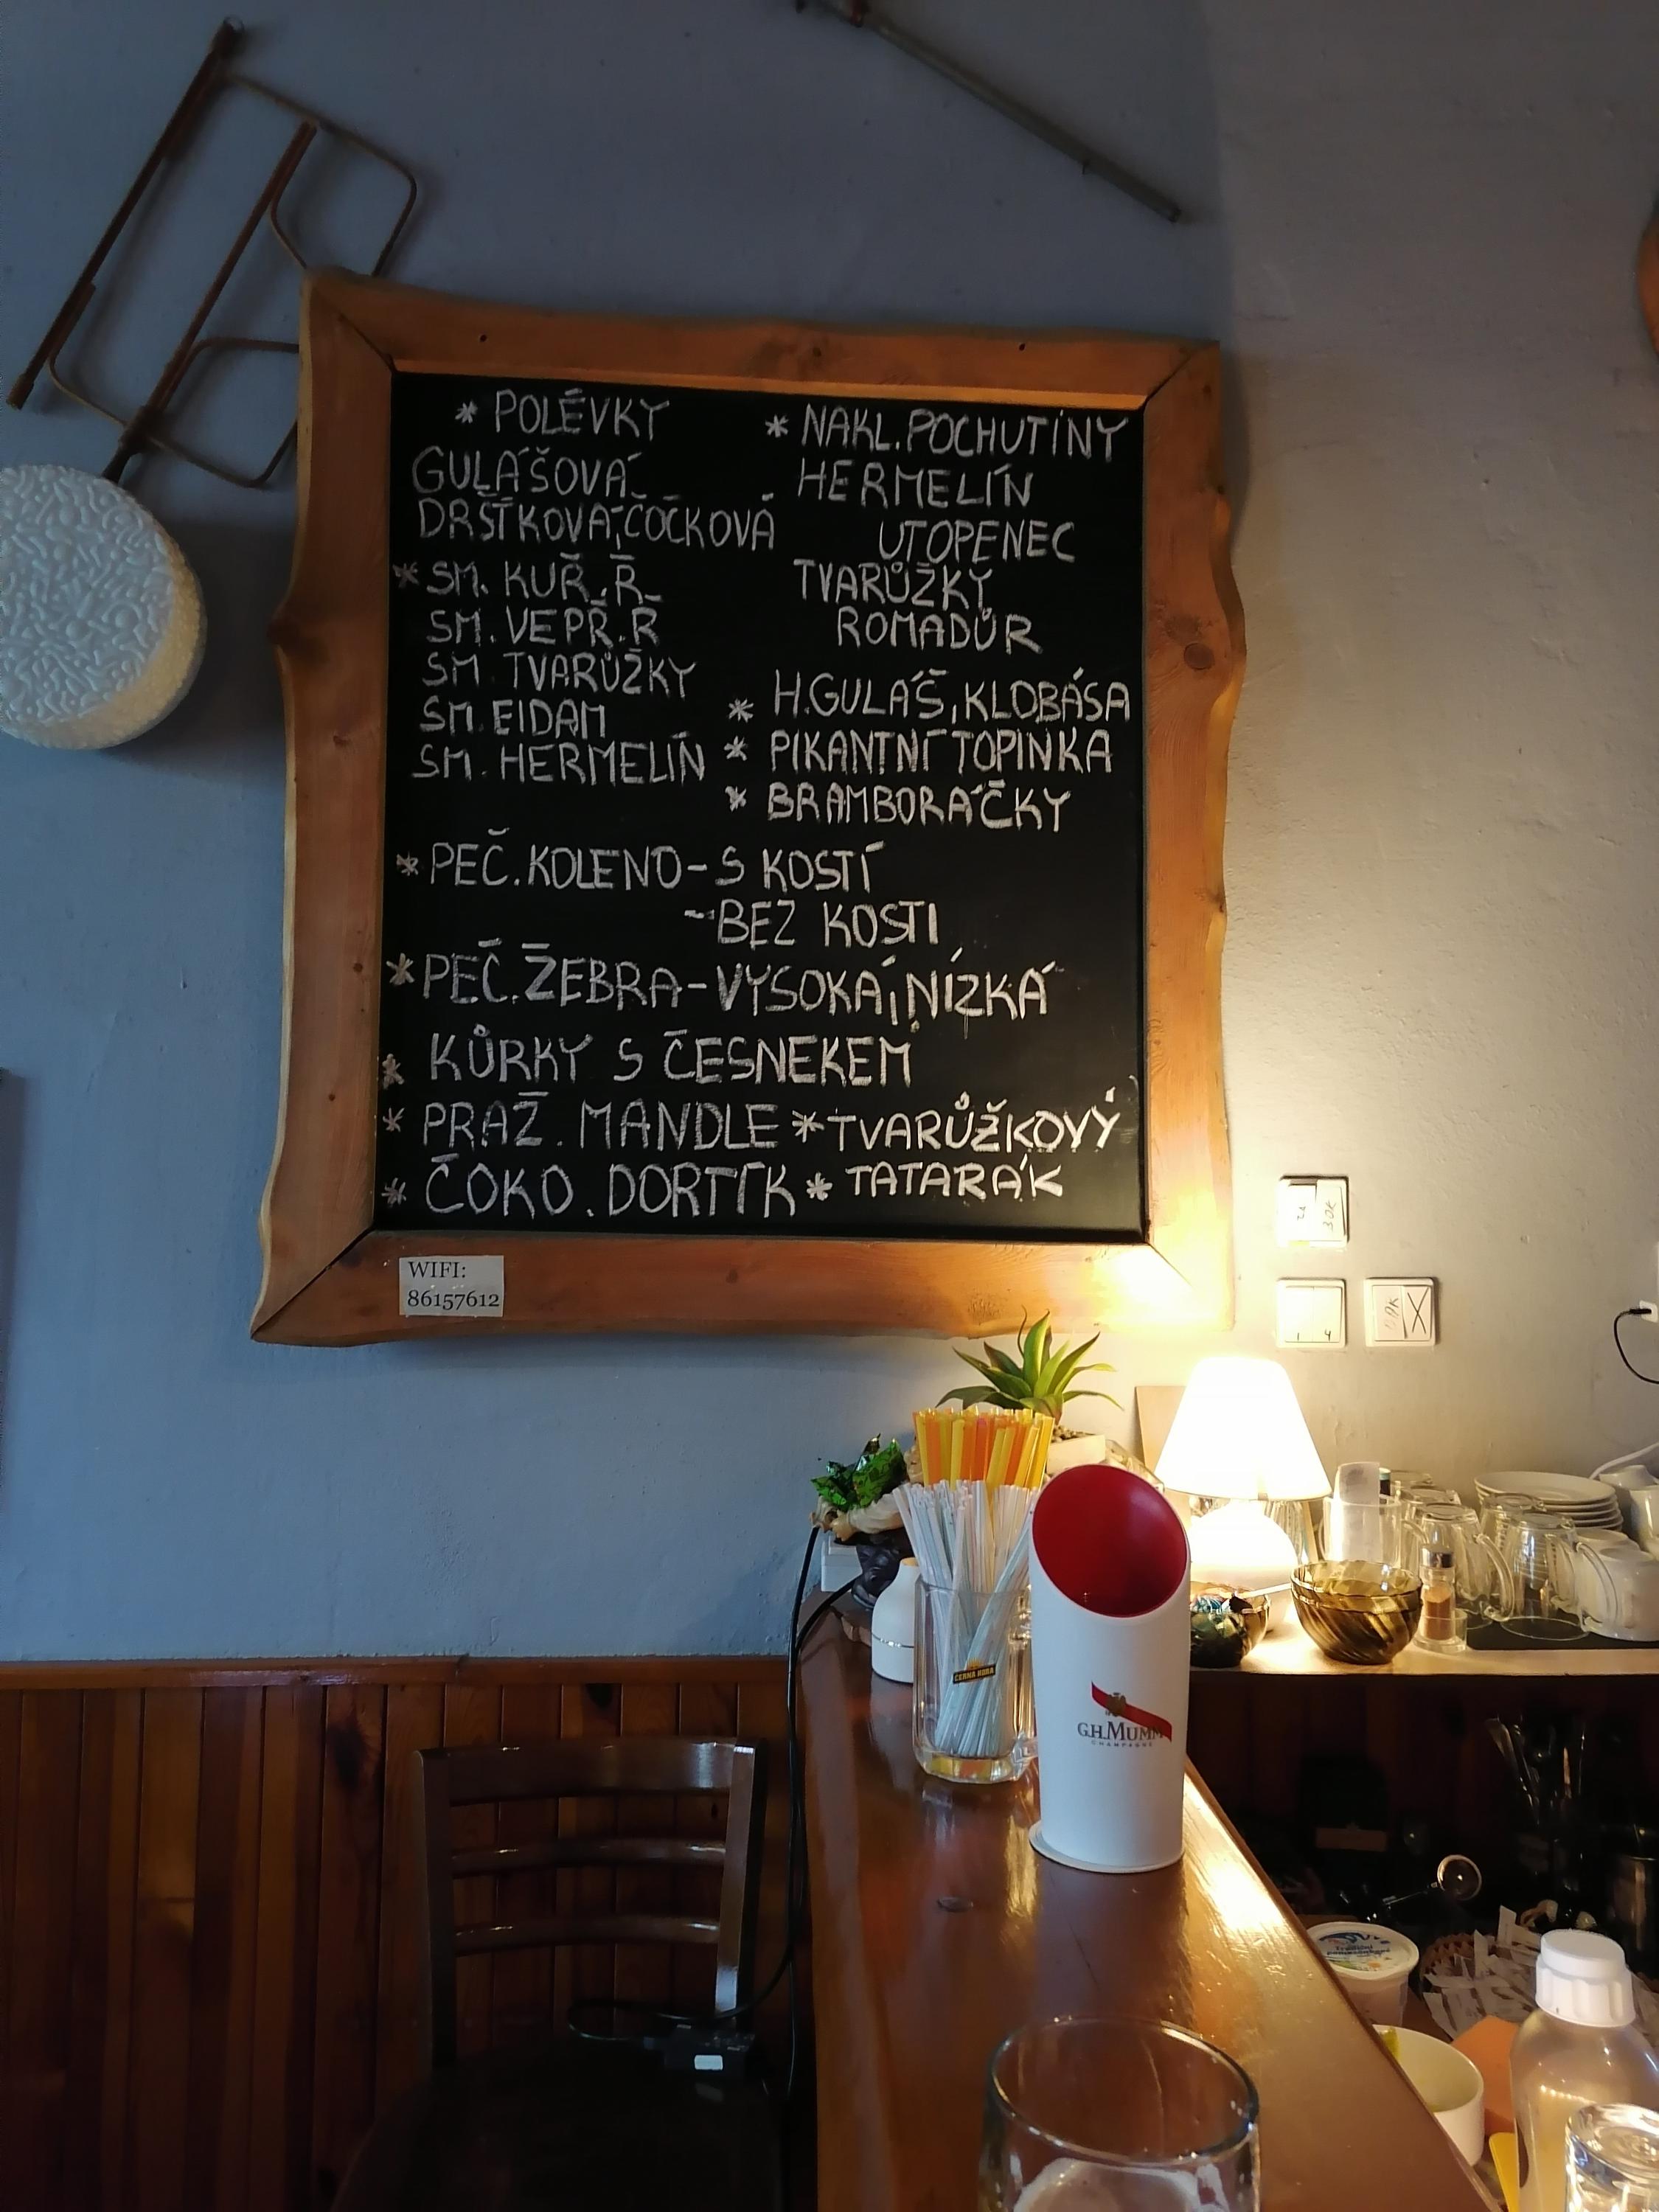 * POLÉVKY
GULÁŠOVÁ
DRŠŤKOVÁ, ČOČKOVÁ
* SM. KUŘ. Ř.
SM. VEPŘ. Ř
SM. TVARŮŽKY
SM. EIDAM
SM. HERMELÍN
* NAKL. POCHUTINY
HERMELÍN
UTOPENEC
TVARŮŽKY
ROMADŮR
* H. GULÁŠ, KLOBÁSA
* PIKANTNÍ TOPINKA
* BRAMBORÁČKY
* PEČ. KOLENO - S KOSTÍ
- BEZ KOSTI
* PEČ. ŽEBRA - VYSOKÁ, NÍZKÁ
* KŮRKY S ČESNEKEM
* PRAŽ. MANDLE * TVARŮŽKOVÝ
* ČOKO. DORTÍK * TATARÁK
WIFI:
86157612
ČERNÁ HORA
G.H.MUMM
CHAMPAGNE